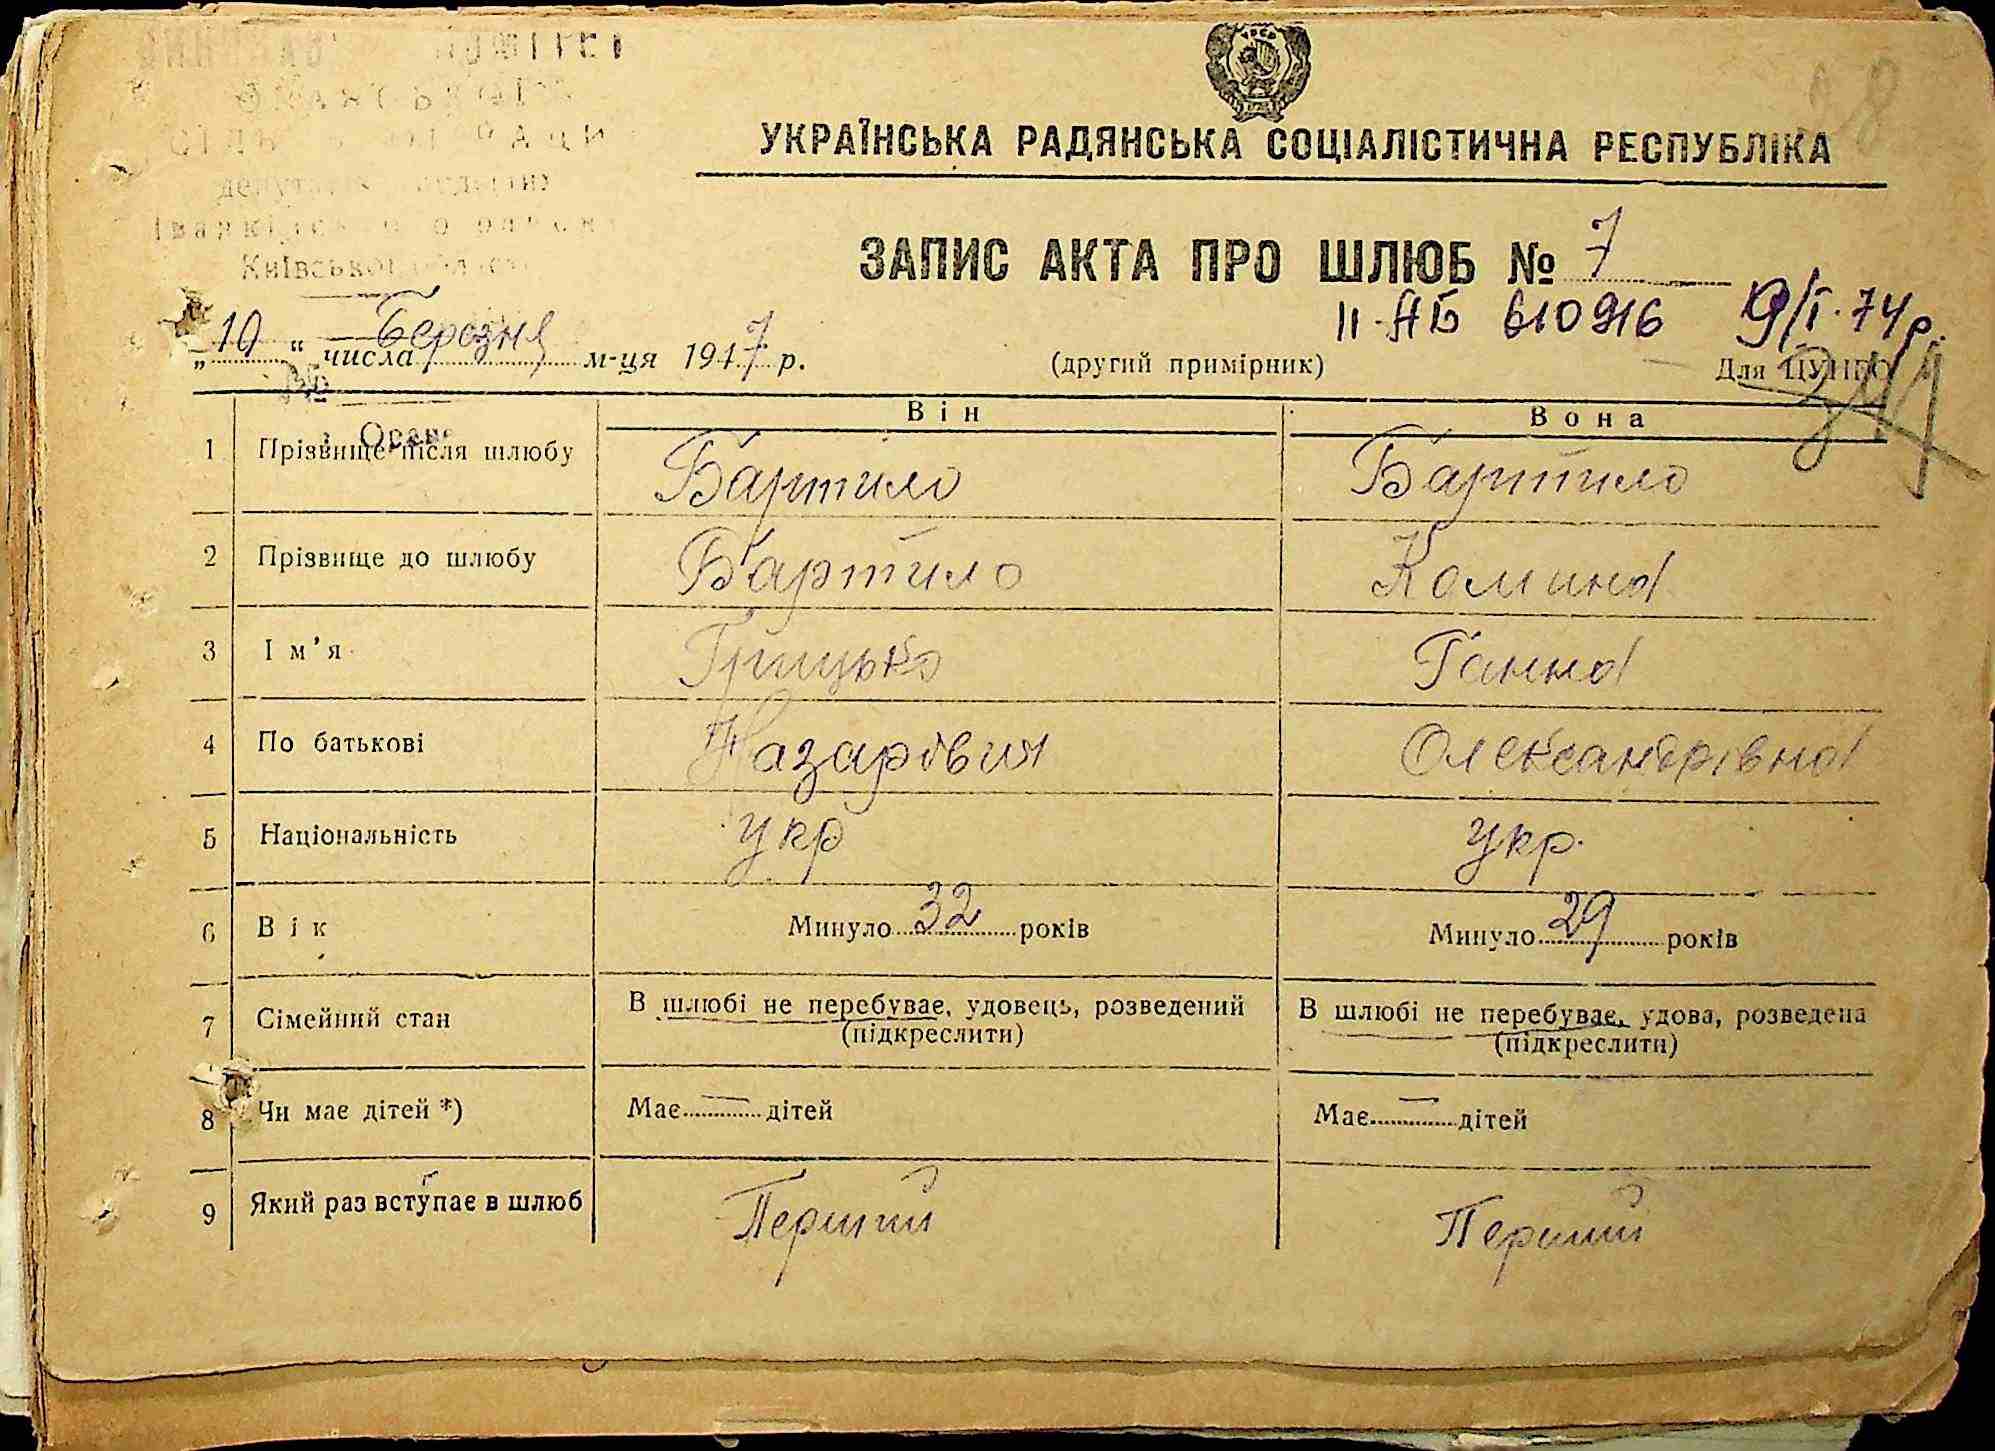 28
УКРАЇНСЬКА РАДЯНСЬКА СОЦІАЛІСТИЧНА РЕСПУБЛІКА
Київської
ЗАПИС АКТА ПРО ШЛЮБ № 7
II-АБ 610916 9/I.74 р.
„10" числа Березня м-ця 1947 р.
(другий примірник)
Для
Він Вона
1 Прізвище після шлюбу Бартило Бартило
2 Прізвище до шлюбу Бартило Комина
3 Ім'я Грицько Ганна
4 По батькові Назарович Олександрівна
5 Національність укр укр.
6 Вік Минуло 32 років Минуло 29 років
7 Сімейний стан В шлюбі не перебуває, удовець, розведений В шлюбі не перебуває, удова, розведена
(підкреслити) (підкреслити)
8 Чи має дітей *) Має — дітей Має — дітей
9 Який раз вступає в шлюб Перший Перший